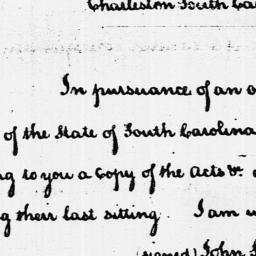 Charleston South Ca
In pursuance of an o
of the State of South Carolina
g to you a Copy of the Acts &c.
g their last sitting. I am
(signed) John